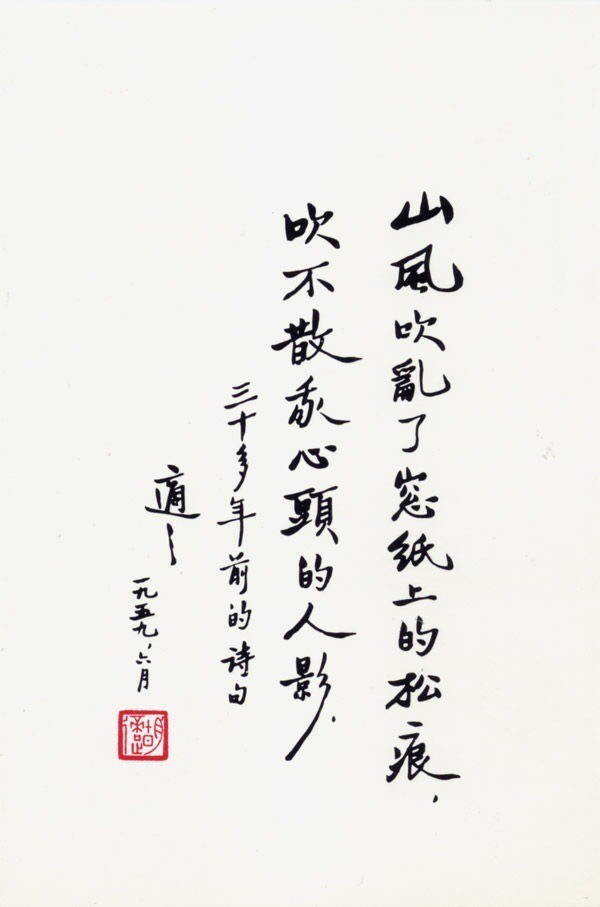 山風吹亂了窗紙上的松痕，
吹不散我心頭的人影．
三十多年前的詩句
適之
一九五九、六月
胡適